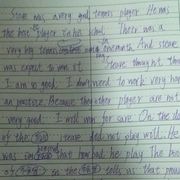 Steve was a very god tennis player. He was
the best player in his school. There was a
very big tennis one month. And steve
was expect to win it. Steve thought that
I am so good. I don't need to work very hard
on practice. Because the other player are not
very good. I will win for sure. On the day
of the steve did not play will. He
was in that how bad he play. The
of so the tells us that